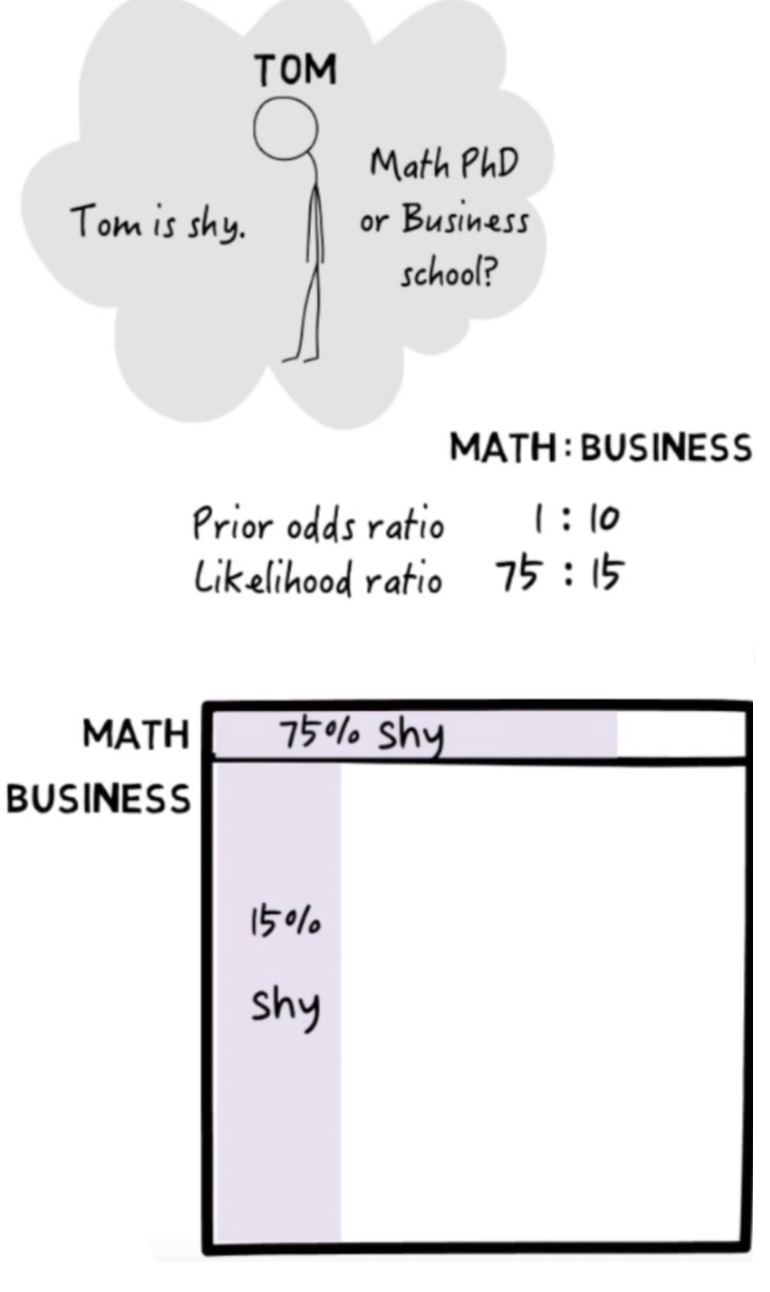 TOM
Tom is shy.
Math PhD
or Business
school?
MATH : BUSINESS
Prior odds ratio 1 : 10
Likelihood ratio 75 : 15
MATH
75% shy
BUSINESS
15%
shy